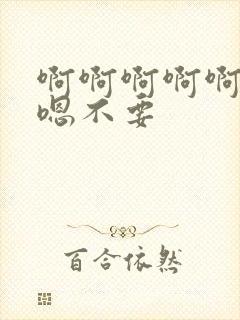 啊啊啊啊啊
嗯不要
百合依然